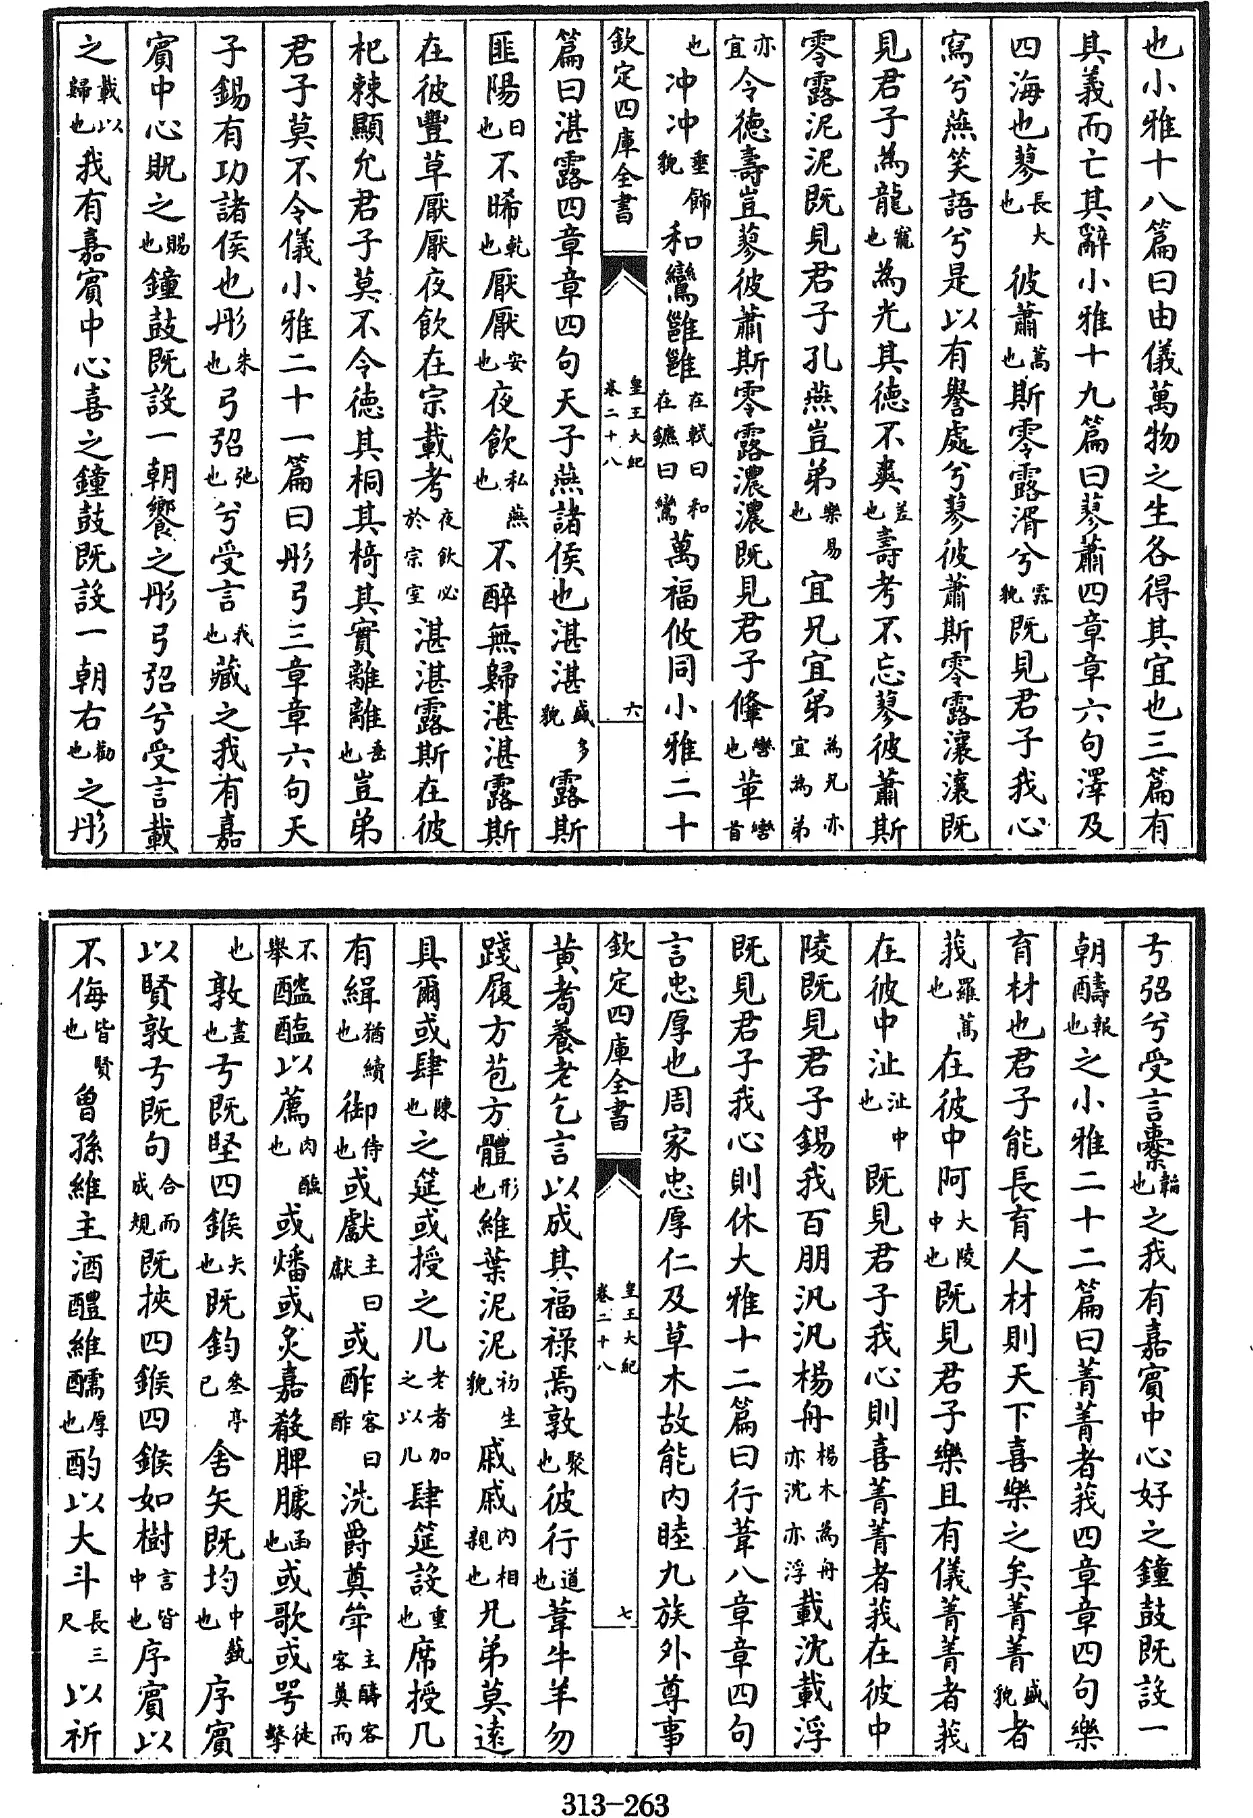 也小雅十八篇曰由儀萬物之生各得其宜也三篇有
其義而亡其辭小雅十九篇曰蓼蕭四章章六句澤及
四海也蓼長大也彼蕭蒿也斯零露湑兮露貌既見君子我心
寫兮燕笑語兮是以有譽處兮蓼彼蕭斯零露瀼瀼既
見君子為龍寵也為光其德不爽差也壽考不忘蓼彼蕭斯
零露泥泥既見君子孔燕豈弟樂易也宜兄宜弟為兄亦宜為弟
亦宜令德壽豈蓼彼蕭斯零露濃濃既見君子鞗轡也革轡首
也冲冲垂飾貌和鸞雝雝在軾曰和在鑣曰鸞萬福攸同小雅二十
欽定四庫全書 皇王大紀 卷二十八 六
篇曰湛露四章章四句天子燕諸侯也湛湛盛多貌露斯
匪陽日也不晞乾也厭厭安也夜飲私燕也不醉無歸湛湛露斯
在彼豐草厭厭夜飲在宗載考夜飲必於宗室湛湛露斯在彼
杞棘顯允君子莫不令德其桐其椅其實離離垂也豈弟
君子莫不令儀小雅二十一篇曰彤弓三章章六句天
子錫有功諸侯也彤朱也弓弨弛也兮受言我也藏之我有嘉
賓中心貺之賜也鐘鼓既設一朝饗之彤弓弨兮受言載
之載以歸也我有嘉賓中心喜之鐘鼓既設一朝右勸也之彤
弓弨兮受言櫜韜也之我有嘉賓中心好之鐘鼓既設一
朝醻報也之小雅二十二篇曰菁菁者莪四章章四句樂
育材也君子能長育人材則天下喜樂之矣菁菁盛貌者
莪羅蒿也在彼中阿大陵中也既見君子樂且有儀菁菁者莪
在彼中沚沚中也既見君子我心則喜菁菁者莪在彼中
陵既見君子錫我百朋汎汎楊舟楊木為舟亦沈亦浮載沈載浮
既見君子我心則休大雅十二篇曰行葦八章章四句
言忠厚也周家忠厚仁及草木故能内睦九族外尊事
欽定四庫全書 皇王大紀 卷二十八 七
黄耉養老乞言以成其福禄焉敦聚也彼行道也葦牛羊勿
踐履方苞方體形也維葉泥泥初生貌戚戚内相親也兄弟莫遠
具爾或肆陳也之筵或授之几老者加之以几肆筵設重也席授几
有緝猶續也御侍也或獻主曰獻或酢客曰酢洗爵奠斝主醻客客奠而
不舉醓醢以薦肉醢也或燔或炙嘉殽脾臄函也或歌或咢徒擊
也敦畫也弓既堅四鍭矢也既鈞叄亭已舍矢既均中蓺也序賓
以賢敦弓既句合而成規既挾四鍭四鍭如樹言皆中也序賓以
不侮皆賢也曾孫維主酒醴維醹厚也酌以大斗長三尺以祈
313-263